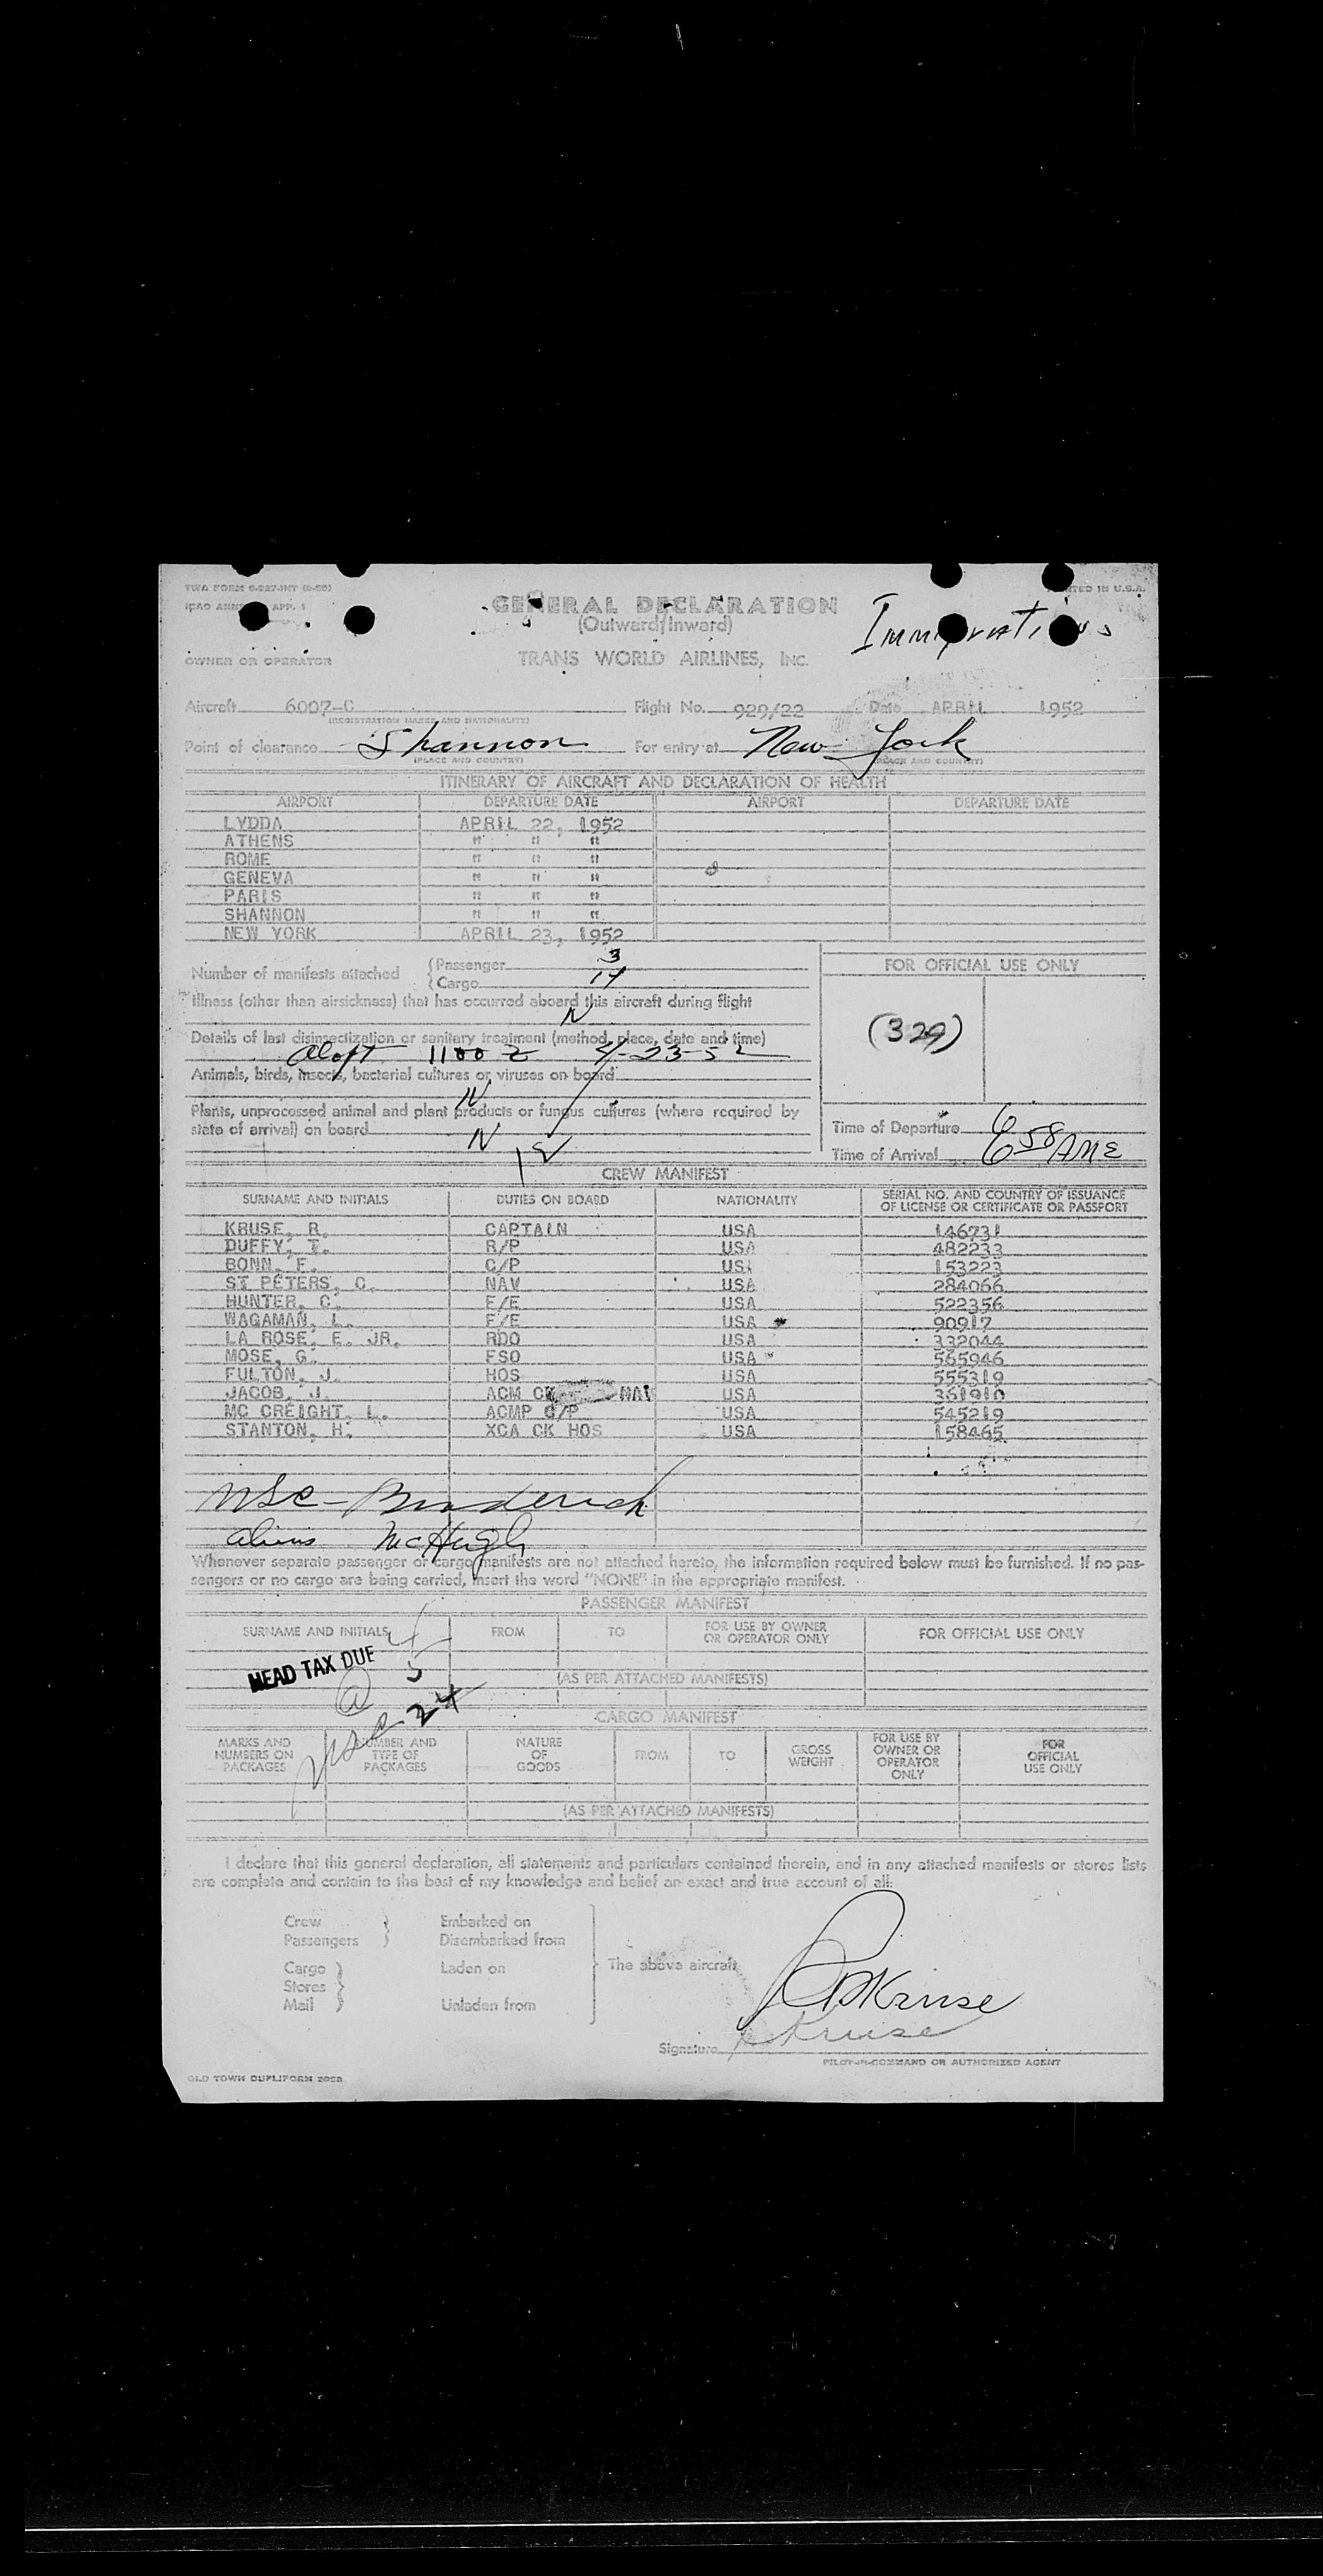 TWA FORM (9-50) PRINTED IN U.S.A.
ICAO APP. 1
GENERAL DECLARATION
(Outward/Inward)
Immigrations
OWNER OR OPERATOR TRANS WORLD AIRLINES, INC.
Aircraft 6007-C Flight No. 929/22 Date APRIL 1952
(REGISTRATION MARKS AND NATIONALITY)
Point of clearance Shannon For entry at New York
(PLACE AND COUNTRY) (PLACE AND COUNTRY)
ITINERARY OF AIRCRAFT AND DECLARATION OF HEALTH
AIRPORT DEPARTURE DATE AIRPORT DEPARTURE DATE
LYDDA APRIL 22, 1952
ATHENS " " "
ROME " " "
GENEVA " " "
PARIS " " "
SHANNON " " "
NEW YORK APRIL 23, 1952
Number of manifests attached (Passenger 3
(Cargo 14
FOR OFFICIAL USE ONLY
Illness (other than airsickness) that has occurred aboard this aircraft during flight
N
(329)
Details of last disinsectization or sanitary treatment (method, place, date and time)
aloft 1100 Z 4-23-52
Animals, birds, insects, bacterial cultures or viruses on board
N
Plants, unprocessed animal and plant products or fungus cultures (where required by
state of arrival) on board N
12
Time of Departure
Time of Arrival 6 58 AM E
CREW MANIFEST
SURNAME AND INITIALS DUTIES ON BOARD NATIONALITY SERIAL NO. AND COUNTRY OF ISSUANCE OF LICENSE OR CERTIFICATE OR PASSPORT
KRUSE, R. CAPTAIN USA 146731
DUFFY, T. R/P USA 482233
BONN, F. C/P USA 153223
ST PETERS, C. NAV USA 284066
HUNTER, C. F/E USA 522356
WAGAMAN, L. F/E USA 90917
LA ROSE, E. JR. RDO USA 332044
MOSE, G. FSO USA 565946
FULTON, J. HOS USA 555319
JACOB, J. ACM CK NAV USA 361910
MC CREIGHT, L. ACMP C/P USA 545219
STANTON, H. XCA CK HOS USA 158465
USC - Broderick
aliens McHugh
Whenever separate passenger or cargo manifests are not attached hereto, the information required below must be furnished. If no pas-
sengers or no cargo are being carried, insert the word "NONE" in the appropriate manifest.
PASSENGER MANIFEST
SURNAME AND INITIALS FROM TO FOR USE BY OWNER OR OPERATOR ONLY FOR OFFICIAL USE ONLY
HEAD TAX DUE 4
5
(AS PER ATTACHED MANIFESTS)
USC 24
CARGO MANIFEST
MARKS AND NUMBERS ON PACKAGES NUMBER AND TYPE OF PACKAGES NATURE OF GOODS FROM TO GROSS WEIGHT FOR USE BY OWNER OR OPERATOR ONLY FOR OFFICIAL USE ONLY
(AS PER ATTACHED MANIFESTS)
I declare that this general declaration, all statements and particulars contained therein, and in any attached manifests or stores lists
are complete and contain to the best of my knowledge and belief an exact and true account of all:
Crew Embarked on
Passengers Disembarked from
Cargo Laden on The above aircraft
Stores
Mail Unladen from
R Kruse
R Kruse
Signature
PILOT-IN-COMMAND OR AUTHORIZED AGENT
OLD TOWN DUPLIFORM